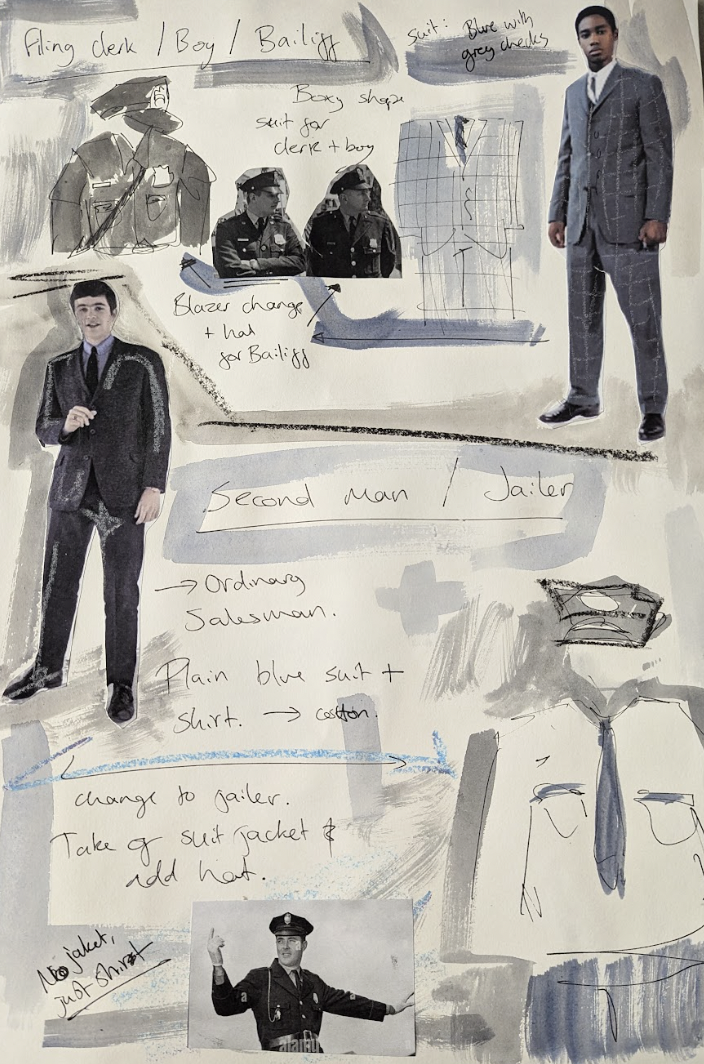 Filing clerk / Boy / Bailiff
suit: Blue with
grey checks
Boxy shape
suit for
clerk + boy
Blazer change
+ hat
for Bailiff
Second Man / Jailer
→ Ordinary
Salesman.
Plain blue suit +
shirt. → cotton.
change to jailer.
Take of suit jacket &
add hat.
No jaket,
just shirt
a
alamy